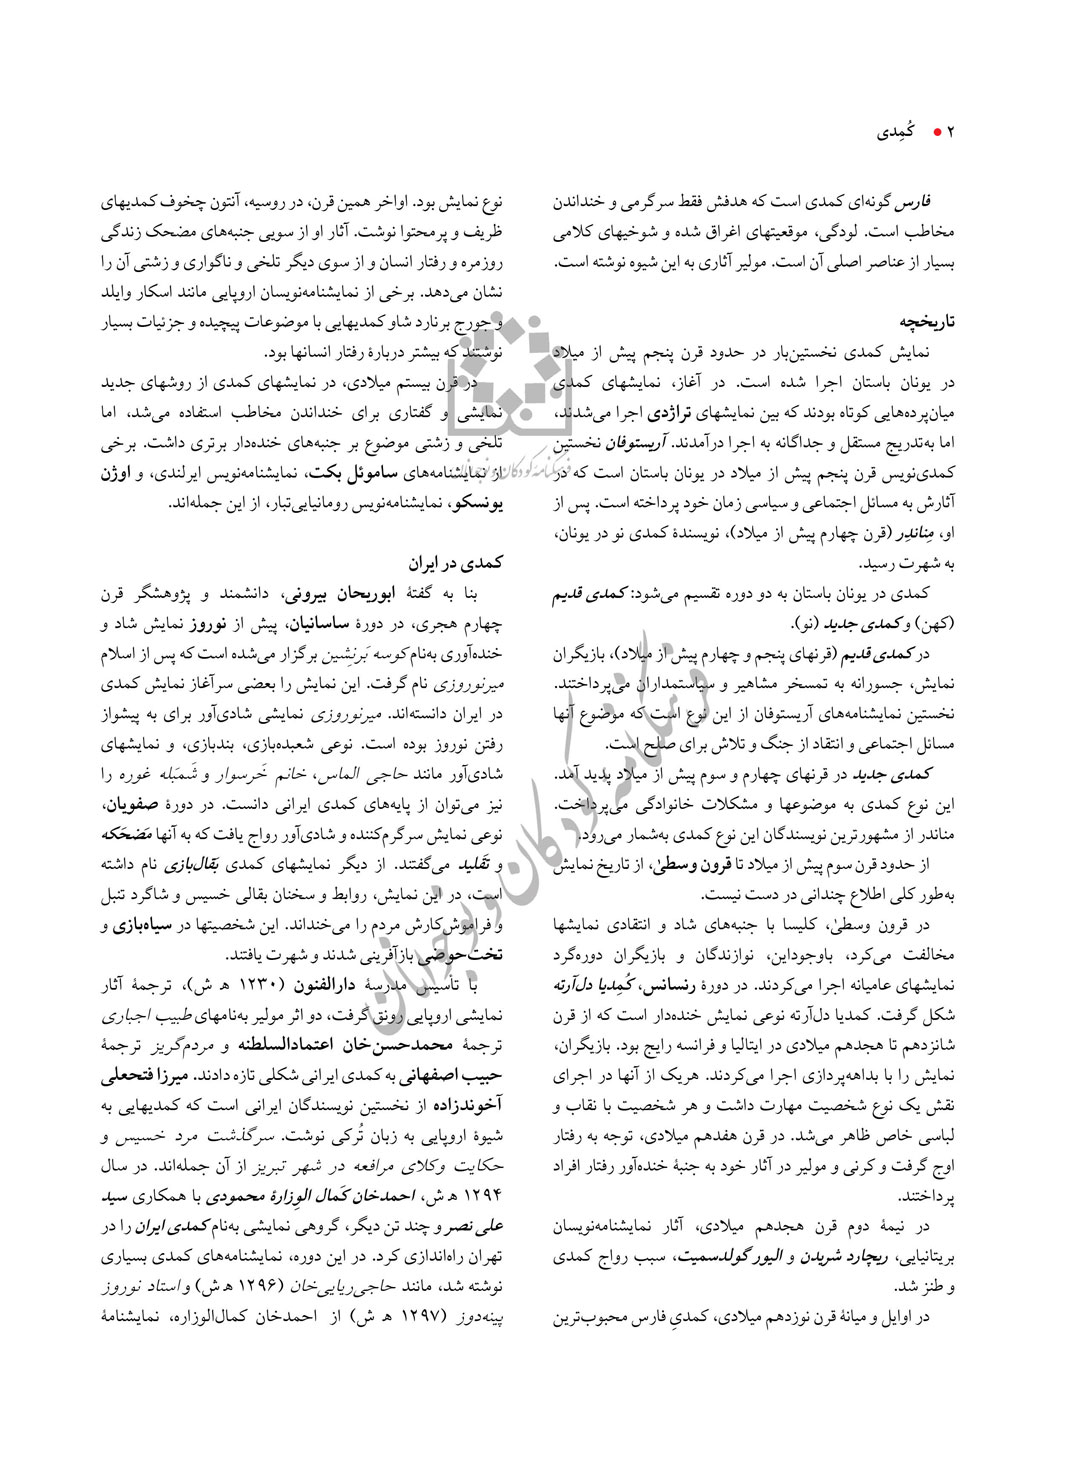 ۲ • کُمِدی
فارس گونه‌ای کمدی است که هدفش فقط سرگرمی و خنداندن
مخاطب است. لودگی، موقعیتهای اغراق شده و شوخیهای کلامی
بسیار از عناصر اصلی آن است. مولیر آثاری به این شیوه نوشته است.
تاریخچه
نمایش کمدی نخستین‌بار در حدود قرن پنجم پیش از میلاد
در یونان باستان اجرا شده است. در آغاز، نمایشهای کمدی
میان‌پرده‌هایی کوتاه بودند که بین نمایشهای تراژدی اجرا می‌شدند،
اما به‌تدریج مستقل و جداگانه به اجرا درآمدند. آریستوفان نخستین
کمدی‌نویس قرن پنجم پیش از میلاد در یونان باستان است که در
آثارش به مسائل اجتماعی و سیاسی زمان خود پرداخته است. پس از
او، مِناندِر (قرن چهارم پیش از میلاد)، نویسندهٔ کمدی نو در یونان،
به شهرت رسید.
کمدی در یونان باستان به دو دوره تقسیم می‌شود: کمدی قدیم
(کهن) و کمدی جدید (نو).
در کمدی قدیم (قرنهای پنجم و چهارم پیش از میلاد)، بازیگران
نمایش، جسورانه به تمسخر مشاهیر و سیاستمداران می‌پرداختند.
نخستین نمایشنامه‌های آریستوفان از این نوع است که موضوع آنها
مسائل اجتماعی و انتقاد از جنگ و تلاش برای صلح است.
کمدی جدید در قرنهای چهارم و سوم پیش از میلاد پدید آمد.
این نوع کمدی به موضوعها و مشکلات خانوادگی می‌پرداخت.
مناندر از مشهورترین نویسندگان این نوع کمدی به‌شمار می‌رود.
از حدود قرن سوم پیش از میلاد تا قرون وسطیٰ، از تاریخ نمایش
به‌طور کلی اطلاع چندانی در دست نیست.
در قرون وسطیٰ، کلیسا با جنبه‌های شاد و انتقادی نمایشها
مخالفت می‌کرد، باوجوداین، نوازندگان و بازیگران دوره‌گرد
نمایشهای عامیانه اجرا می‌کردند. در دورهٔ رنسانس، کُمِدیا دل‌آرته
شکل گرفت. کمدیا دل‌آرته نوعی نمایش خنده‌دار است که از قرن
شانزدهم تا هجدهم میلادی در ایتالیا و فرانسه رایج بود. بازیگران،
نمایش را با بداهه‌پردازی اجرا می‌کردند. هریک از آنها در اجرای
نقش یک نوع شخصیت مهارت داشت و هر شخصیت با نقاب و
لباسی خاص ظاهر می‌شد. در قرن هفدهم میلادی، توجه به رفتار
اوج گرفت و کرنی و مولیر در آثار خود به جنبهٔ خنده‌آور رفتار افراد
پرداختند.
در نیمهٔ دوم قرن هجدهم میلادی، آثار نمایشنامه‌نویسان
بریتانیایی، ریچارد شریدن و الیور گولدسمیت، سبب رواج کمدی
و طنز شد.
در اوایل و میانهٔ قرن نوزدهم میلادی، کمدیِ فارس محبوب‌ترین
نوع نمایش بود. اواخر همین قرن، در روسیه، آنتون چخوف کمدیهای
ظریف و پرمحتوا نوشت. آثار او از سویی جنبه‌های مضحک زندگی
روزمره و رفتار انسان و از سوی دیگر تلخی و ناگواری و زشتی آن را
نشان می‌دهد. برخی از نمایشنامه‌نویسان اروپایی مانند اسکار وایلد
و جورج برنارد شاو کمدیهایی با موضوعات پیچیده و جزئیات بسیار
نوشتند که بیشتر دربارهٔ رفتار انسانها بود.
در قرن بیستم میلادی، در نمایشهای کمدی از روشهای جدید
نمایشی و گفتاری برای خنداندن مخاطب استفاده می‌شد، اما
تلخی و زشتی موضوع بر جنبه‌های خنده‌دار برتری داشت. برخی
از نمایشنامه‌های ساموئل بکت، نمایشنامه‌نویس ایرلندی، و اوژن
یونسکو، نمایشنامه‌نویس رومانیایی‌تبار، از این جمله‌اند.
کمدی در ایران
بنا به گفتهٔ ابوریحان بیرونی، دانشمند و پژوهشگر قرن
چهارم هجری، در دورهٔ ساسانیان، پیش از نوروز نمایش شاد و
خنده‌آوری به‌نام کوسه بَرنِشین برگزار می‌شده است که پس از اسلام
میرنوروزی نام گرفت. این نمایش را بعضی سرآغاز نمایش کمدی
در ایران دانسته‌اند. میرنوروزی نمایشی شادی‌آور برای به پیشواز
رفتن نوروز بوده است. نوعی شعبده‌بازی، بندبازی، و نمایشهای
شادی‌آور مانند حاجی الماس، خانم خَرسوار و شَمبَله غوره را
نیز می‌توان از پایه‌های کمدی ایرانی دانست. در دورهٔ صفویان،
نوعی نمایش سرگرم‌کننده و شادی‌آور رواج یافت که به آنها مَضحَکه
و تَقلید می‌گفتند. از دیگر نمایشهای کمدی بَقال‌بازی نام داشته
است، در این نمایش، روابط و سخنان بقالی خسیس و شاگرد تنبل
و فراموش‌کارش مردم را می‌خنداند. این شخصیتها در سیاه‌بازی و
تخت‌حوضی بازآفرینی شدند و شهرت یافتند.
با تأسیس مدرسهٔ دارالفنون (۱۲۳۰ ه‍ ش)، ترجمهٔ آثار
نمایشی اروپایی رونق گرفت، دو اثر مولیر به‌نامهای طبیب اجباری
ترجمهٔ محمدحسن‌خان اعتمادالسلطنه و مردم‌گریز ترجمهٔ
حبیب اصفهانی به کمدی ایرانی شکلی تازه دادند. میرزا فتحعلی
آخوندزاده از نخستین نویسندگان ایرانی است که کمدیهایی به
شیوهٔ اروپایی به زبان تُرکی نوشت. سرگذشت مرد خسیس و
حکایت وکلای مرافعه در شهر تبریز از آن جمله‌اند. در سال
۱۲۹۴ ه‍ ش، احمدخان کَمال الوِزارهٔ محمودی با همکاری سید
علی نصر و چند تن دیگر، گروهی نمایشی به‌نام کمدی ایران را در
تهران راه‌اندازی کرد. در این دوره، نمایشنامه‌های کمدی بسیاری
نوشته شد، مانند حاجی‌ریایی‌خان (۱۲۹۶ ه‍ ش) و استاد نوروز
پینه‌دوز (۱۲۹۷ ه‍ ش) از احمدخان کمال‌الوزاره، نمایشنامهٔ
فرهنگنامه کودکان و نوجوانان
فرهنگنامه کودکان و نوجوانان